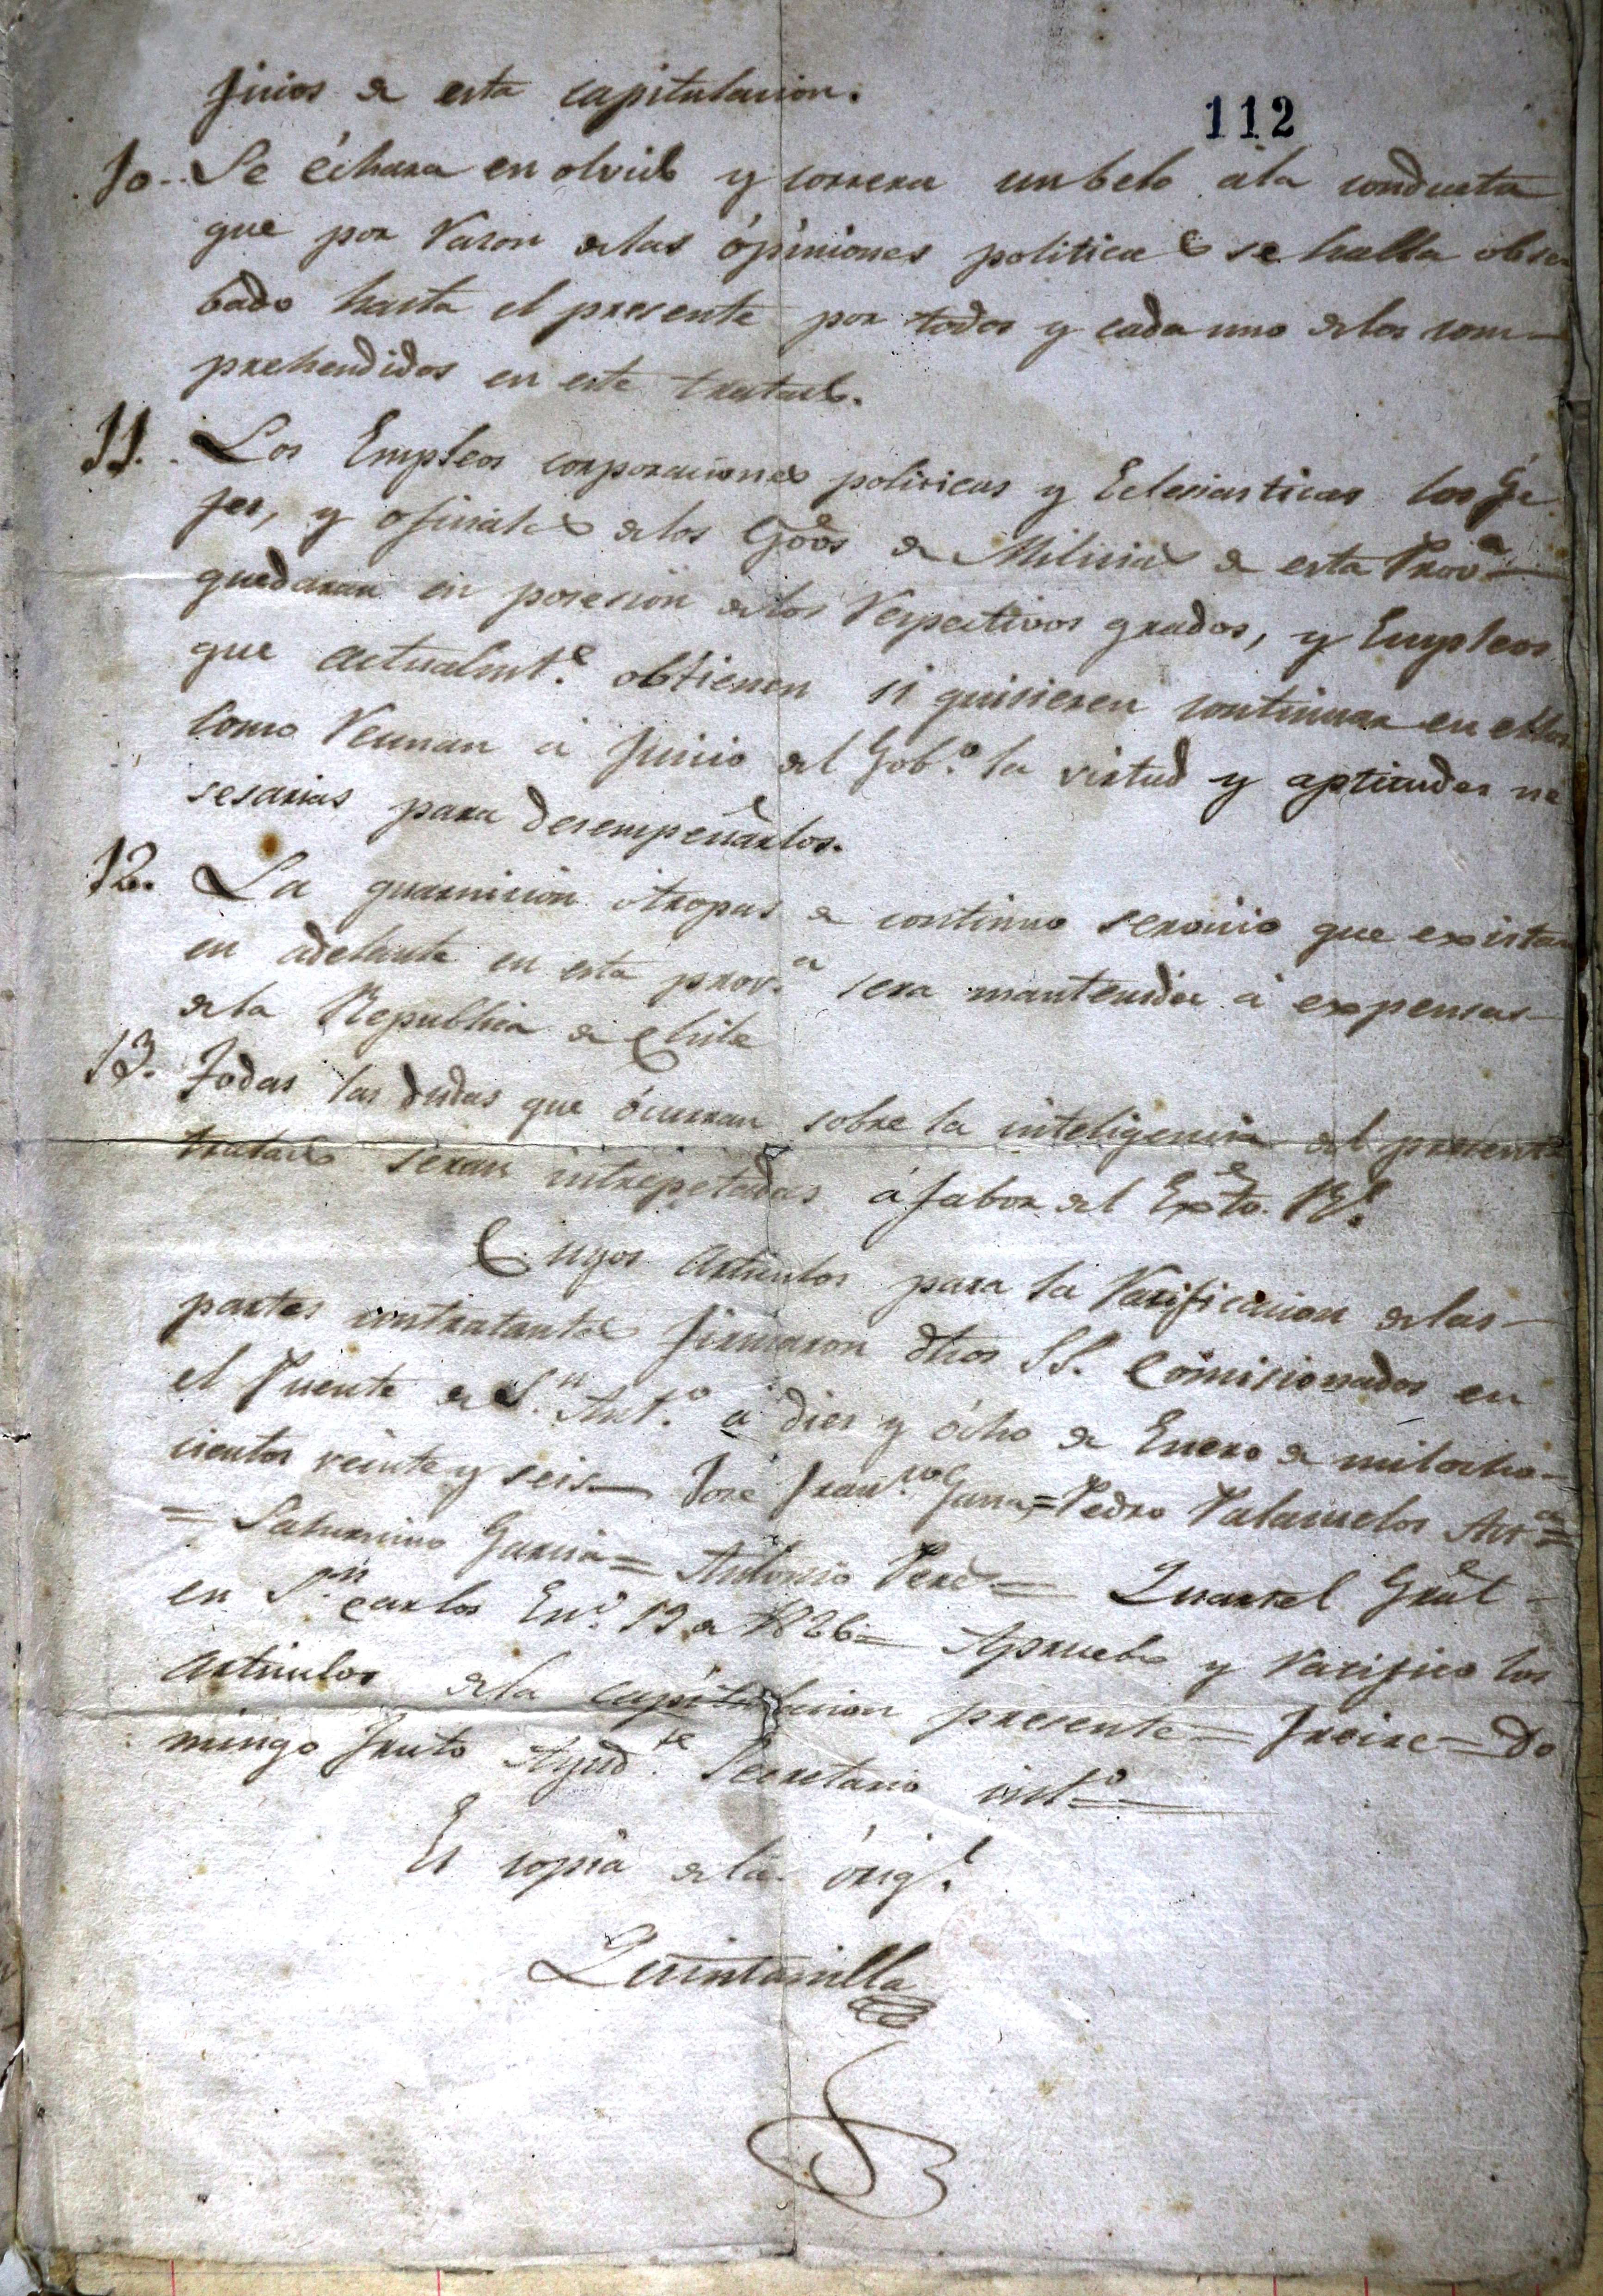 ficios de esta capitulacion.
112
10.. Se échara en olvido y correra un belo ála conducta
que por Razon delas ópiniones politicas se halla obser
bado hasta el presente por todos y cada uno delos com-
prehendidos en este tratado.
11. Los Empleos corporaciones politicas y Eclesiasticas los Ge
fes, y oficiales delos de Milicias de esta Prov.a
quedaran en posesion delos Respectivos grados, y Empleos
que actualmt.e obtienen si quisieren continuar en ellos
como Reunan á juicio del Gob.o la virtud y aptitudes ne
sesarias para desempeñarlos.
12. La guarnicion ótropas de continuo servicio que exista
en adelante en esta prov.a sera mantenida á expensas
dela Republica de Chile
13. Todas las dudas que ócurran sobre la inteligencia del presente
tratado seran intrepetadas á fabor del Exto. Rl.
Cuyos articulos para la Ratificacion delas
partes contratantes firmaron dhos SS. Comisionados en
el Puente de S.n Ant.o á diez y ócho de Enero de mil ocho-
cientos veinte y seis— Jose Fran.co Gana=Pedro Palasuelos Ast.a=
= Saturnino Garcia= Antonio Perez= Quartel Gral
en S.n Carlos En.o 19 de 1826= Apruebo y Ratifico los
articulos dela capitulacion presente= Freire= Do
mingo Fruto Ayud.te Secretario int.o=
Es copia dela órig.l
Quintanilla